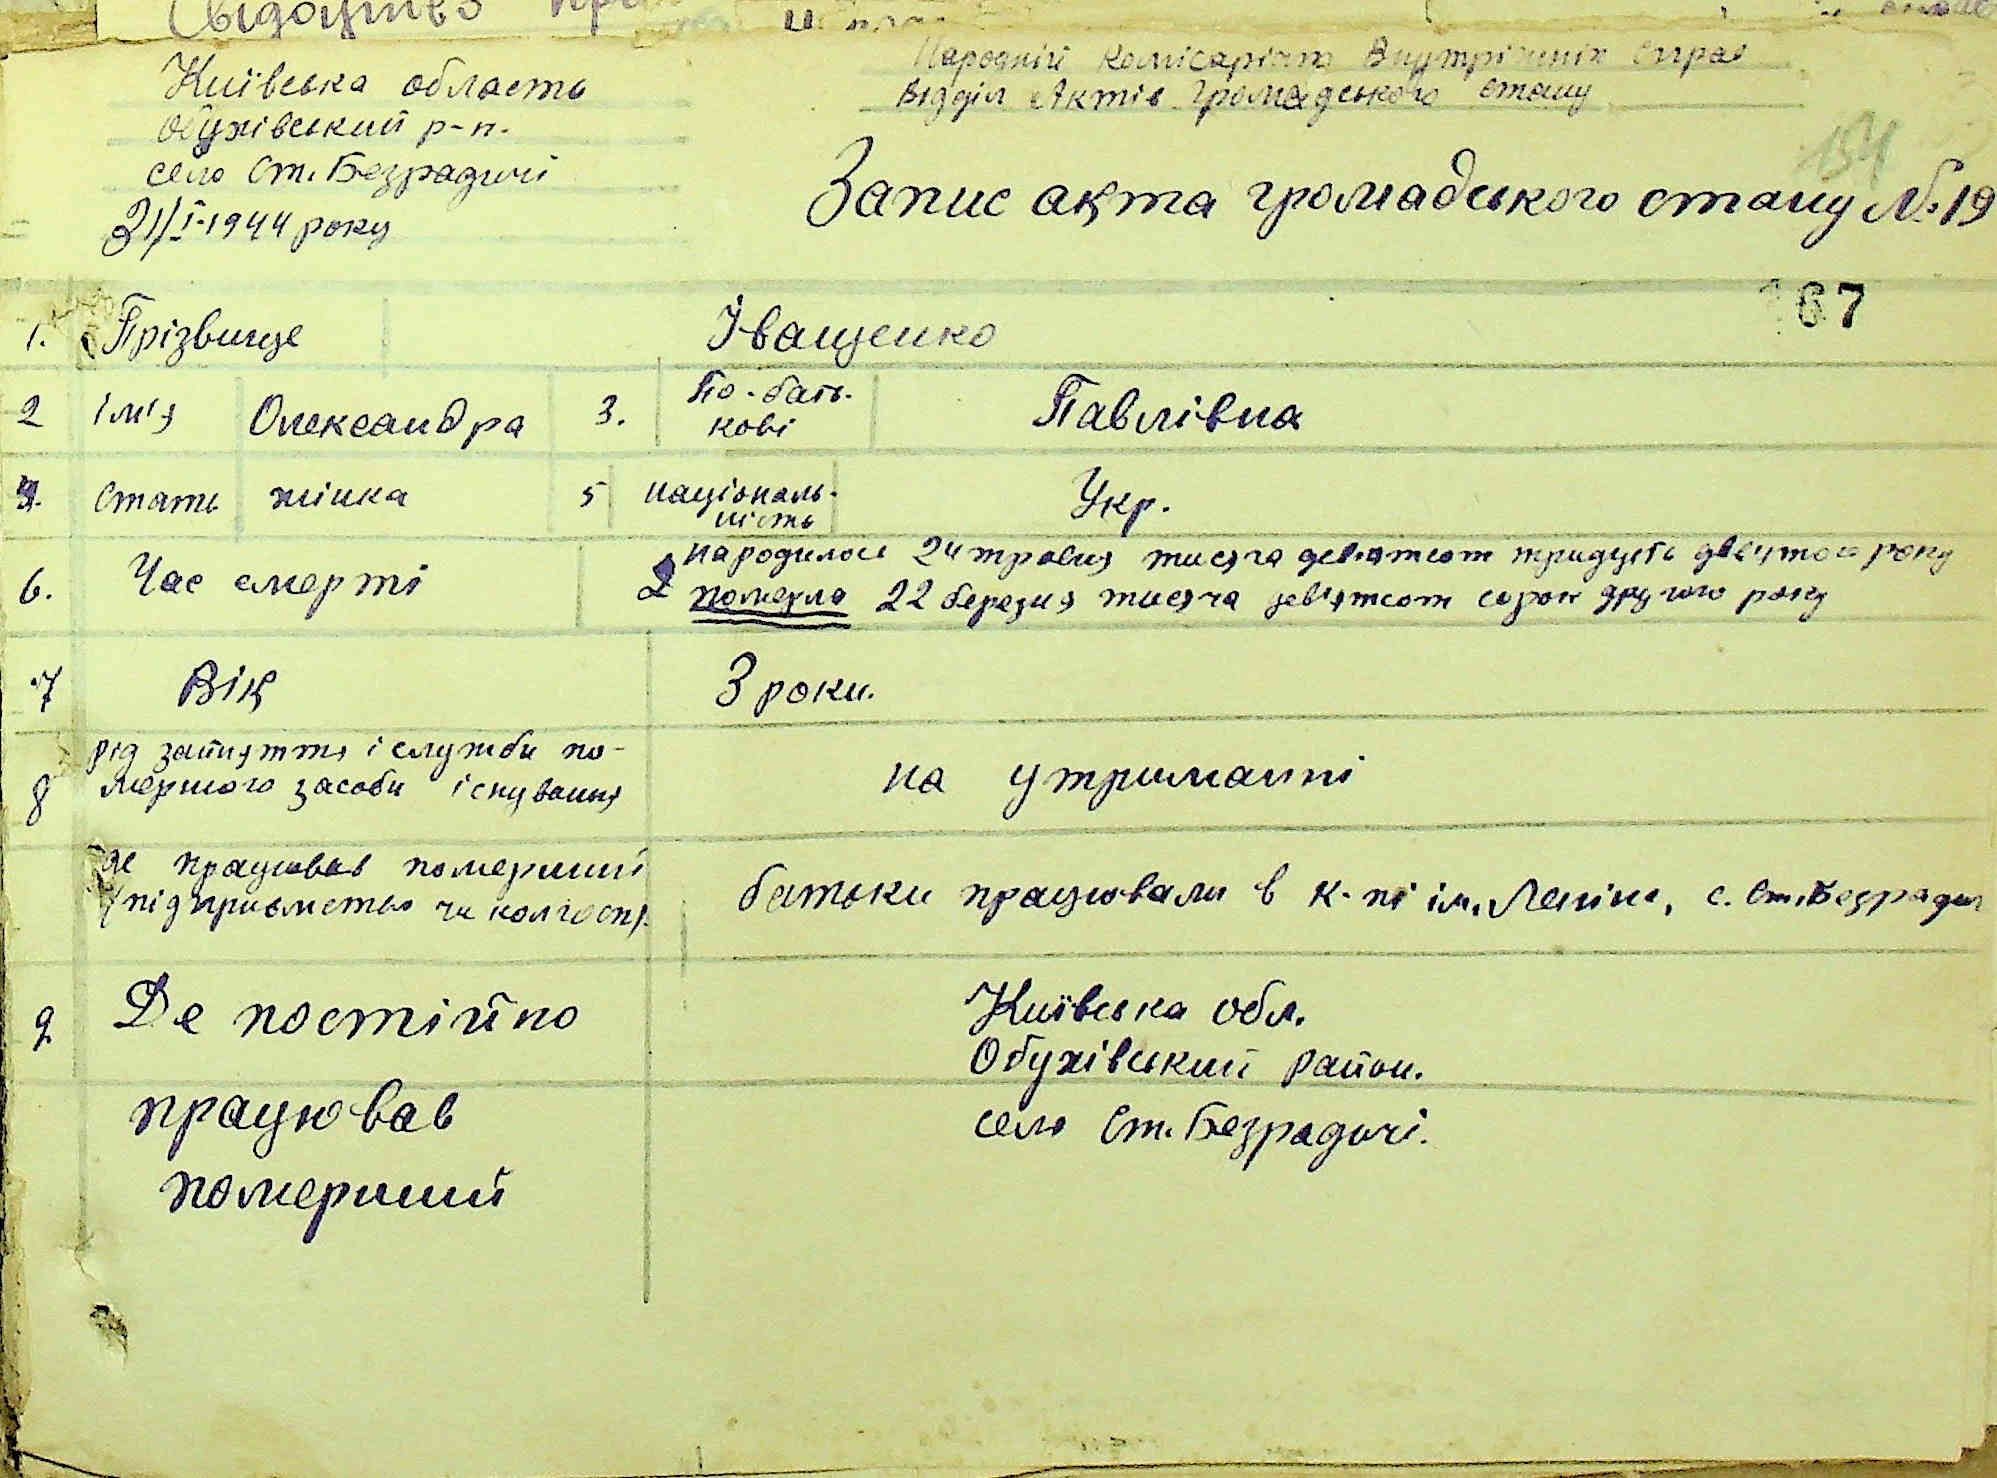 Свідоцтво
Київська область
Обухівський р-н.
село Ст. Безрадичі
31/I-1944 року
Народній Комісаріят Внутрішніх Справ
Відділ Актів Громадського Стану
154
Запис акта громадського стану № 19
167
1. Прізвище Іващенко
2 ім'я Олександра 3. По-бать-
кові Павлівна
4. Стать жінка 5 національ-
ність Укр.
6. Час смерті народилась 24 травня тисяча девятсот тридцять девятого року
померла 22 березня тисяча девятсот сорок другого року
7 Вік 3 роки.
8 рід заняття і служби по-
мершого засоби існування на утриманні
де працював померший
(підприємство чи колгосп). батьки працювали в к-пі ім. Леніна, с. Ст. Безрадич
9 Де постійно
працював
померший
Київська обл.
Обухівський район.
село Ст. Безрадичі.